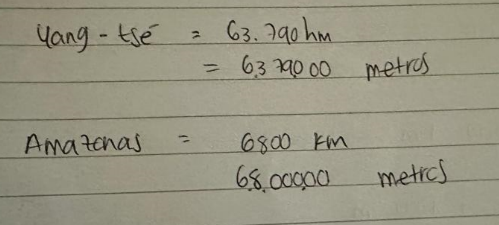 Yang-tsé = 63.790 hm
= 6.379.000 metros
Amazonas = 6800 km
6.8.00.000 metros